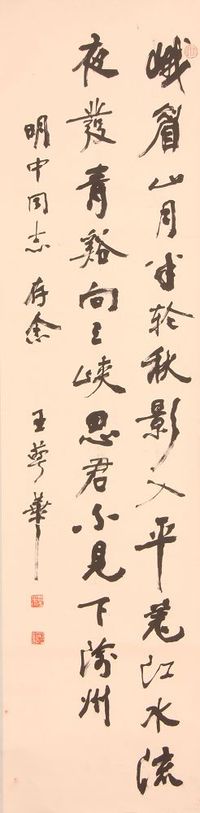 峨眉山月半轮秋影入平羌江水流
夜發青谿向三峽思君不見下渝州
明中同志 存念 王萼華